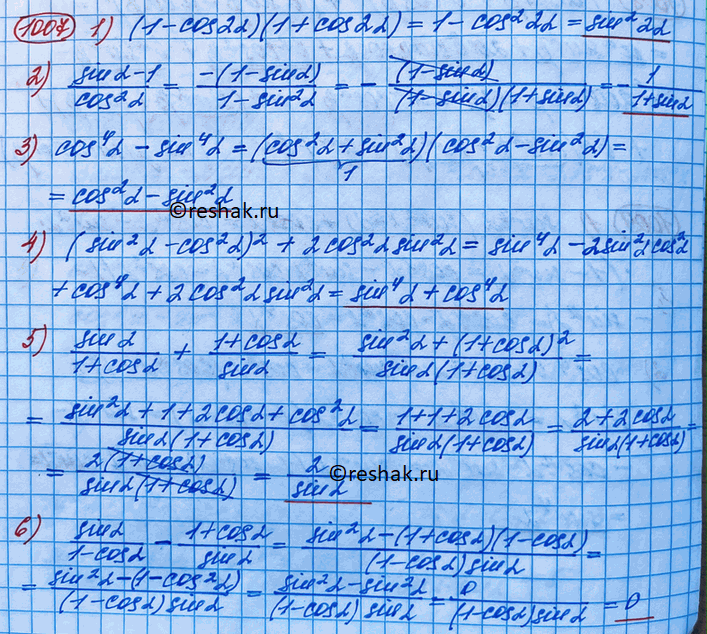 1007 1) (1-cos2α)(1+cos2α) = 1-cos²2α = sin²2α
2) (sinα-1)/(cos²α) = (-(1-sinα))/(1-sin²α) = - (1-sinα)/((1-sinα)(1+sinα)) = - 1/(1+sinα)
3) cos⁴α - sin⁴α = (cos²α + sin²α)(cos²α - sin²α) =
1
= cos²α - sin²α
©reshak.ru
4) (sin²α - cos²α)² + 2cos²α sin²α = sin⁴α - 2sin²α cos²α
+ cos⁴α + 2cos²α sin²α = sin⁴α + cos⁴α
5) sinα/(1+cosα) + (1+cosα)/sinα = (sin²α + (1+cosα)²)/(sinα(1+cosα)) =
= (sin²α + 1 + 2cosα + cos²α)/(sinα(1+cosα)) = (1+1+2cosα)/(sinα(1+cosα)) = (2+2cosα)/(sinα(1+cosα)) =
= (2(1+cosα))/(sinα(1+cosα)) = 2/sinα
©reshak.ru
6) sinα/(1-cosα) - (1+cosα)/sinα = (sin²α - (1+cosα)(1-cosα))/((1-cosα)sinα) =
= (sin²α - (1-cos²α))/((1-cosα)sinα) = (sin²α - sin²α)/((1-cosα)sinα) = 0/((1-cosα)sinα) = 0